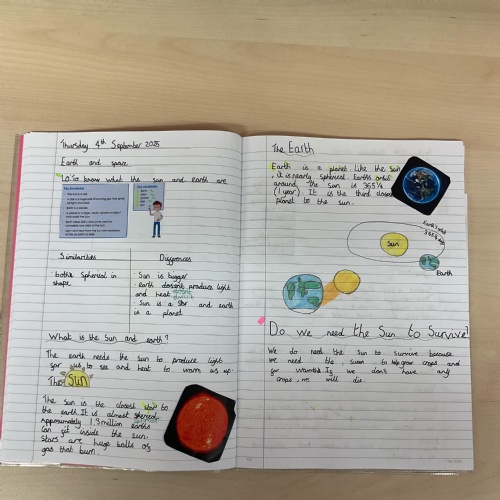 Thursday 4th September 2025
Earth and space
LO: To know what the sun and earth are
Similarities
Differences
both spherical in
shape
Sun is bigger
earth dosent produce light
and heat
Sun is a star and earth
is a planet
What is the Sun and earth?
The earth needs the Sun to produce light
for us to see and heat to warm us up.
The Sun
The Sun is the closest star to
the earth. It is almost
Approximately 1.3 million earths
can fit inside the sun.
Stars are huge balls of
gas that burn.
The Earth
Earth is a planet like the sun
, it is nearly spherical Earths orbit
around the sun is 365 1/4
(1 year). It is the third closest
planet to the sun.
Earth's orbit
365 1/4
Sun
Earth
Do we need the Sun to Survive?
We do need the Sun to Survive because
we need the suun to help grow crops and
for warmth. If we don't have any
crops, we will die.